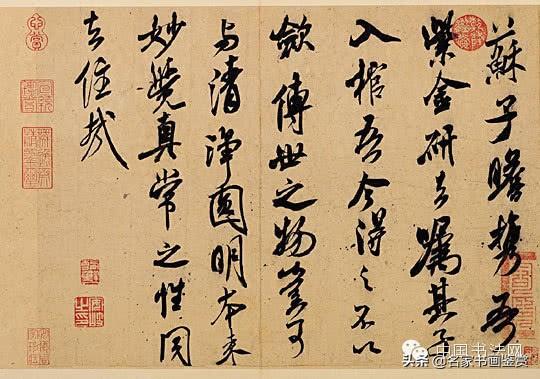 蘇子瞻携吾
紫金研去嘱其子
入棺吾今得之不以
歛傳世之物豈可
与清淨圓明本来
妙覺真常之性同
去住哉
中国书法网
头条 @名家书画鉴赏